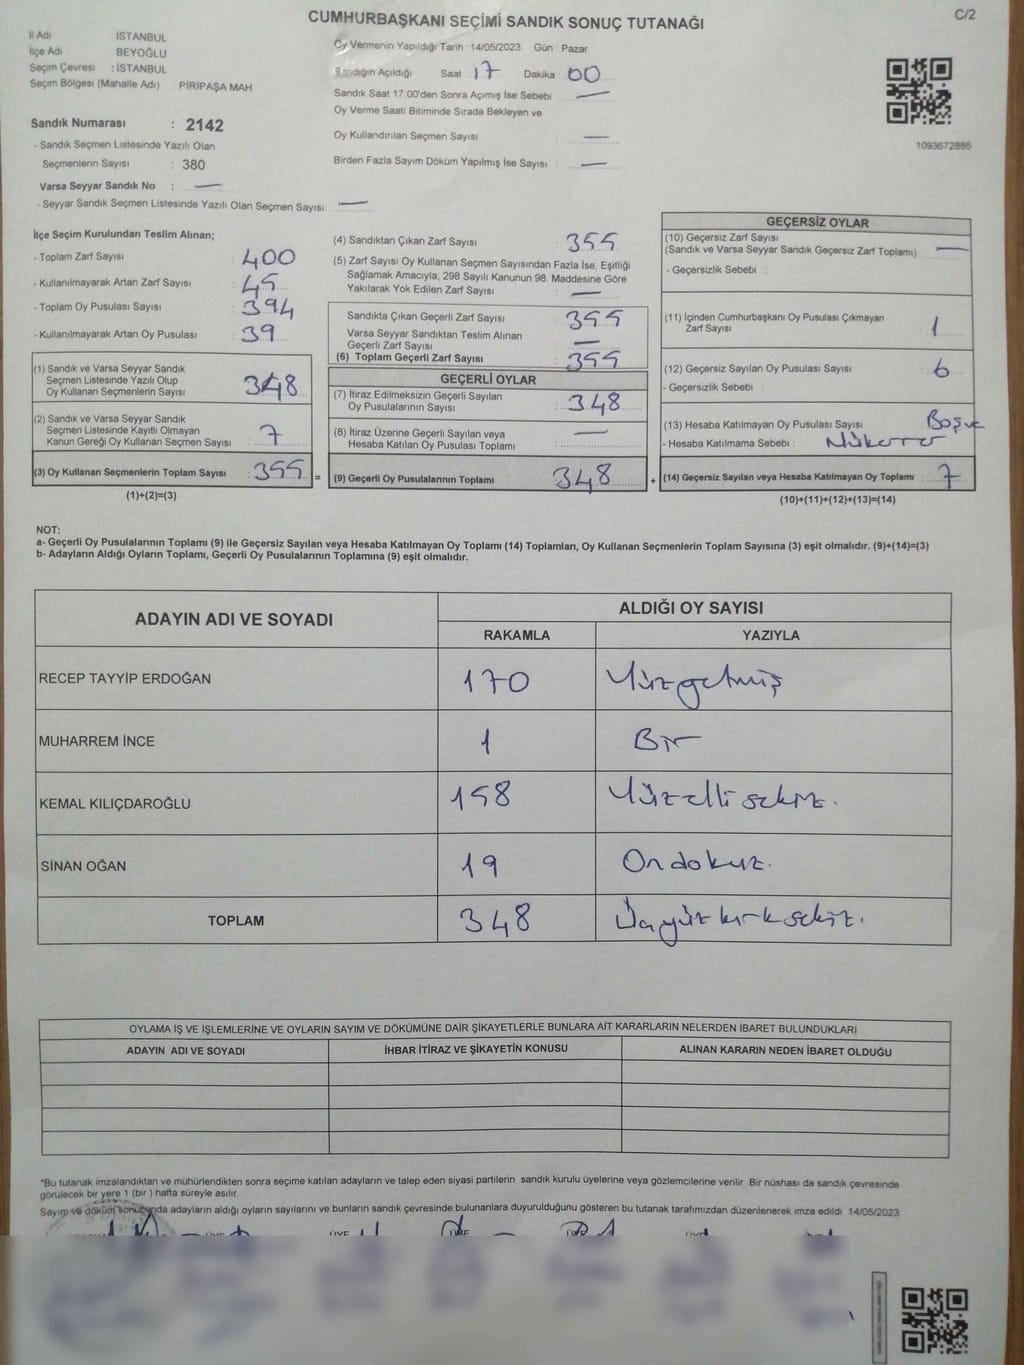 C/2
CUMHURBAŞKANI SEÇİMİ SANDIK SONUÇ TUTANAĞI
İl Adı İSTANBUL
İlçe Adı BEYOĞLU
Seçim Çevresi : İSTANBUL
Seçim Bölgesi (Mahalle Adı) PİRİPAŞA MAH
Sandık Numarası : 2142
- Sandık Seçmen Listesinde Yazılı Olan
Seçmenlerin Sayısı : 380
Varsa Seyyar Sandık No : —
- Seyyar Sandık Seçmen Listesinde Yazılı Olan Seçmen Sayısı: —
Oy Vermenin Yapıldığı Tarih 14/05/2023 Gün Pazar
Sandığın Açıldığı Saat 17 Dakika 00
Sandık Saat 17.00'den Sonra Açımış İse Sebebi —
Oy Verme Saati Bitiminde Sırada Bekleyen ve
Oy Kullandırılan Seçmen Sayısı : —
Birden Fazla Sayım Döküm Yapılmış İse Sayısı : —
1093672885
İlçe Seçim Kurulundan Teslim Alınan;
- Toplam Zarf Sayısı : 400
- Kullanılmayarak Artan Zarf Sayısı : 45
- Toplam Oy Pusulası Sayısı : 394
- Kullanılmayarak Artan Oy Pusulası : 39
(1) Sandık ve Varsa Seyyar Sandık
Seçmen Listesinde Yazılı Olup
Oy Kullanan Seçmenlerin Sayısı : 348
(2) Sandık ve Varsa Seyyar Sandık
Seçmen Listesinde Kayıtlı Olmayan
Kanun Gereği Oy Kullanan Seçmen Sayısı : 7
(3) Oy Kullanan Seçmenlerin Toplam Sayısı : 355 =
(1)+(2)=(3)
(4) Sandıktan Çıkan Zarf Sayısı : 355
(5) Zarf Sayısı Oy Kullanan Seçmen Sayısından Fazla İse, Eşitliği
Sağlamak Amacıyla, 298 Sayılı Kanunun 98. Maddesine Göre
Yakılarak Yok Edilen Zarf Sayısı : —
Sandıkta Çıkan Geçerli Zarf Sayısı : 355
Varsa Seyyar Sandıktan Teslim Alınan
Geçerli Zarf Sayısı : —
(6) Toplam Geçerli Zarf Sayısı : 355
GEÇERLİ OYLAR
(7) İtiraz Edilmeksizin Geçerli Sayılan
Oy Pusulalarının Sayısı : 348
(8) İtiraz Üzerine Geçerli Sayılan veya
Hesaba Katılan Oy Pusulası Toplamı : —
(9) Geçerli Oy Pusulalarının Toplamı : 348 +
GEÇERSİZ OYLAR
(10) Geçersiz Zarf Sayısı
(Sandık ve Varsa Seyyar Sandık Geçersiz Zarf Toplamı) : —
- Geçersizlik Sebebi :
(11) İçinden Cumhurbaşkanı Oy Pusulası Çıkmayan
Zarf Sayısı : 1
(12) Geçersiz Sayılan Oy Pusulası Sayısı : 6
- Geçersizlik Sebebi :
(13) Hesaba Katılmayan Oy Pusulası Sayısı : Boş ve
- Hesaba Katılmama Sebebi : Mükerrer
(14) Geçersiz Sayılan veya Hesaba Katılmayan Oy Toplamı : 7
(10)+(11)+(12)+(13)=(14)
NOT:
a- Geçerli Oy Pusulalarının Toplamı (9) ile Geçersiz Sayılan veya Hesaba Katılmayan Oy Toplamı (14) Toplamları, Oy Kullanan Seçmenlerin Toplam Sayısına (3) eşit olmalıdır. (9)+(14)=(3)
b- Adayların Aldığı Oyların Toplamı, Geçerli Oy Pusulalarının Toplamına (9) eşit olmalıdır.
ADAYIN ADI VE SOYADI
ALDIĞI OY SAYISI
RAKAMLA YAZIYLA
RECEP TAYYİP ERDOĞAN 170 Yüzyetmiş
MUHARREM İNCE 1 Bir
KEMAL KILIÇDAROĞLU 158 Yüzelli sekiz.
SİNAN OĞAN 19 Ondokuz.
TOPLAM 348 Üçyüz kırksekiz.
OYLAMA İŞ VE İŞLEMLERİNE VE OYLARIN SAYIM VE DÖKÜMÜNE DAİR ŞİKAYETLERLE BUNLARA AİT KARARLARIN NELERDEN İBARET BULUNDUKLARI
ADAYIN ADI VE SOYADI İHBAR İTİRAZ VE ŞİKAYETİN KONUSU ALINAN KARARIN NEDEN İBARET OLDUĞU
*Bu tutanak imzalandıktan ve mühürlendikten sonra seçime katılan adayların ve talep eden siyasi partilerin sandık kurulu üyelerine veya gözlemcilerine verilir. Bir nüshası da sandık çevresinde
görülecek bir yere 1 (bir ) hafta süreyle asılır.
Sayım ve döküm sonucunda adayların aldığı oyların sayılarını ve bunların sandık çevresinde bulunanlara duyurulduğunu gösteren bu tutanak tarafımızdan düzenlenerek imza edildi. 14/05/2023